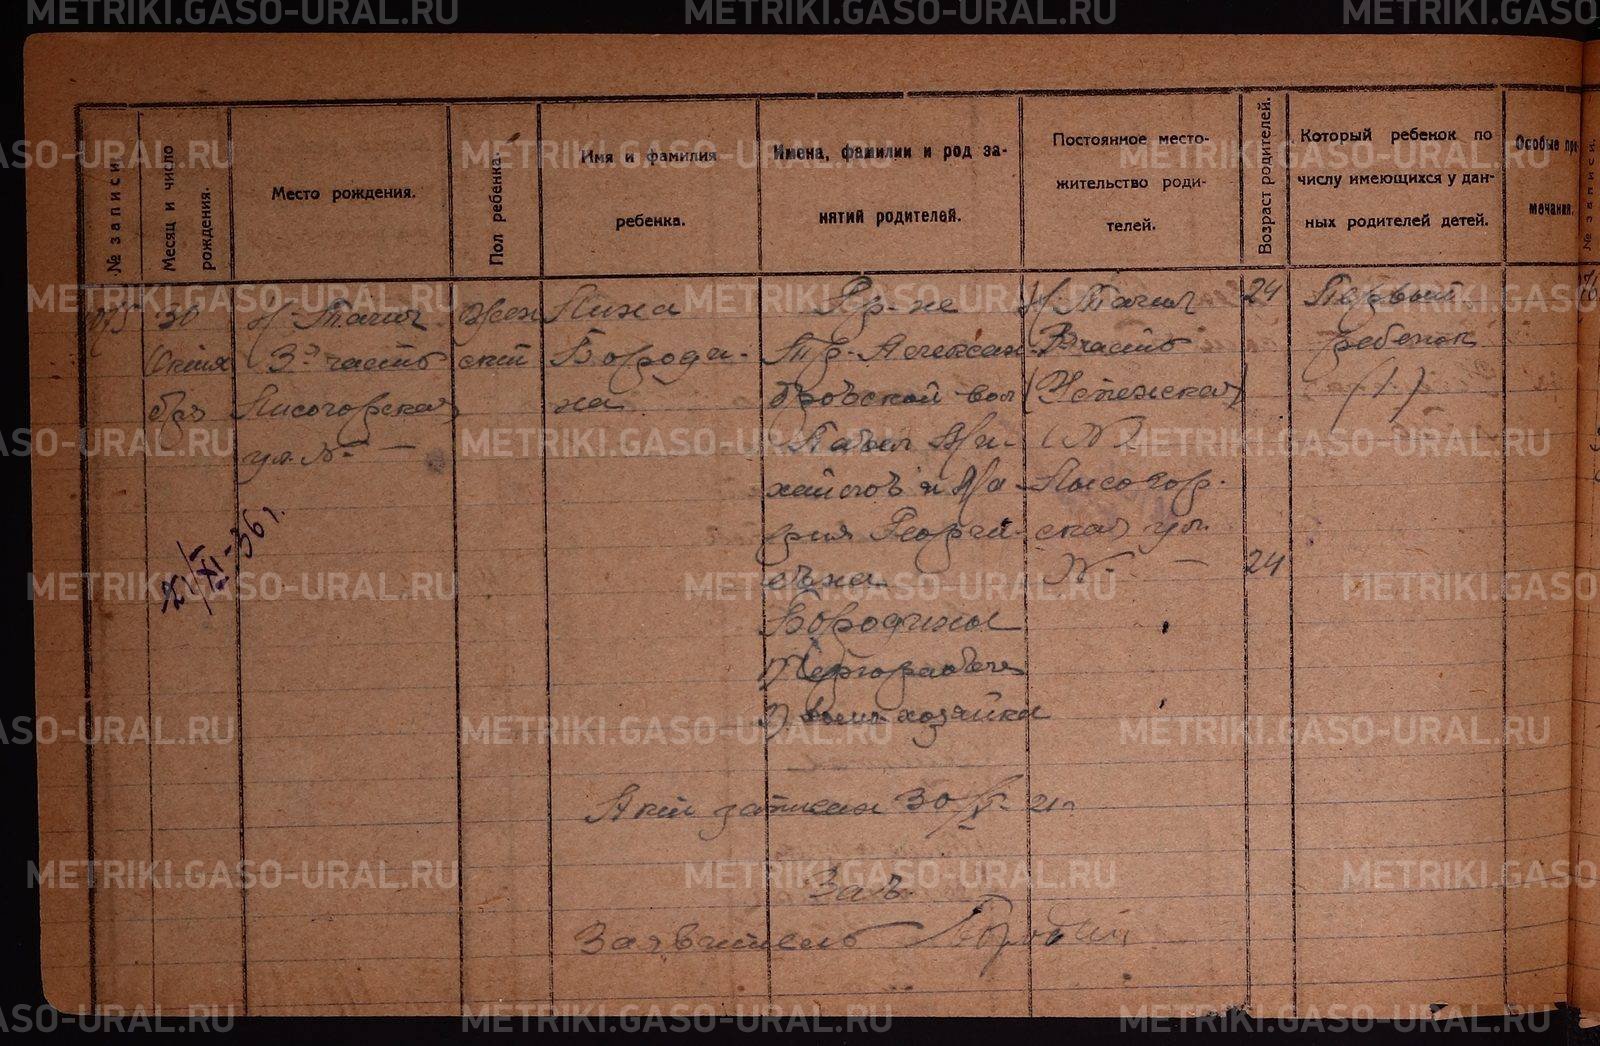 METRIKI.GASO-URAL.RU
№ записи.
Месяц и число
рождения.
Место рождения.
Пол ребенка.
Имя и фамилия
ребенка.
Имена, фамилии и род за-
нятий родителей.
Постоянное место-
жительство роди-
телей.
Возраст родителей.
Который ребенок по
числу имеющихся у дан-
ных родителей детей.
Особые при
мечания.
№ записи.
30
Октя
бря
Н-Тагил
3я часть
Лисогорская
ул. №-
Жен
ский
Нина
Бороди-
на
Гр-не
Александ-
ровской вол
Павел Ми-
хайлов и Ма-
рия Георги-
евна
Бородины
1) Чернорабоч
2) дом. хозяйка
Н-Тагил
3 часть
Лисогор-
ская ул.
№-
24
24
Первый
ребенок
(1)
21/XI-36 г.
Акт записан 30/XI-21 г.
Зав.
Заявитель Бородин